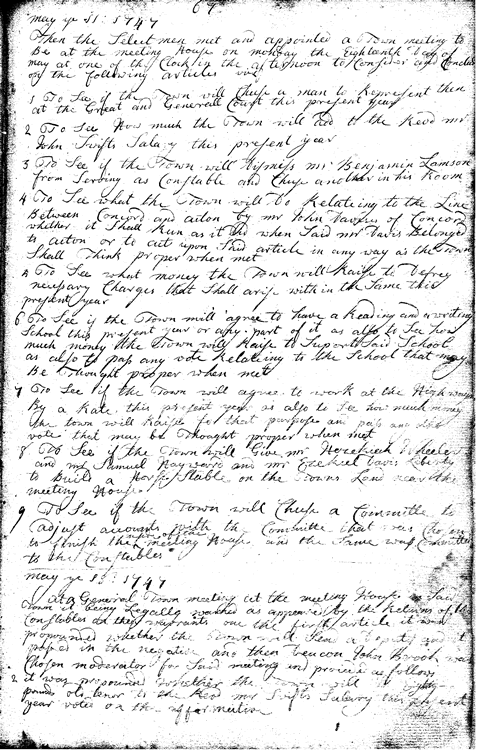 69
may ye 
Then the Select men met and appointed a Town meeting to
Be at the meeting House on monday the Eighteenth Day of
may at one of the Clock in the afternoon to Consider and Conclude
on the following articles viz
1 To See if the Town will Chuse a man to Represent them
at the Great and Generall Court this present year
2 To See How much the Town will add to the Revd mr
John Swifts Salary this present year
3 To See if the Town will Dismess mr Benjamin Lamson
from Serving as Constable and Chuse another in his Room
4 To See what the Town will Do Relateing to the Line
Between Concord and acton by mr John Davises of Concord
whether it Shall Run as it did when Said mr Davis Belonged
to acton or to act upon Said article in any way as the Town
Shall Think proper when met
To See what money the Town will Raise to Defrey
necessary Charges that Shall arise with in the Same this
present year
6 To See if the Town will agree to have a Reading and writing
School this present year or any part of it as also to See how
much money the Town will Raise to Suport Said School
as also to pass any vote Relateing to the School that may
Be Thought proper when met
7 To See if the Town will agree to work at the High ways
By a Rate this present year as also to See how much money
the town will Raise for that purpose and pass any
vote that may be Thought proper when met
8 To See if the Town will Give mr Hezekiah Wheeler
and mr Samuel Hayward and mr Ezekiel Davis Liberty
to Build a Horse Stable on the Towns Land near the
meeting House
9 To See if the Town will Chuse a Committe to
adjust accounts with the Committe that was Chosen
to finish the meeting House and the Same
to the Constables
may ye 
at a General Town meeting at the meeting House in Said
town it being Legally warned as appeared by the Returns of the
Constables on they warrants one the first article it was
propounded whether the Town will Send a
passed in the negative and then Deacon John Brook was
Chosen moderator for Said meeting and
2 it was propounded whether the Town will
pounds old tenor to the Revd mr Swifts Salary this present
year voted on the affermative